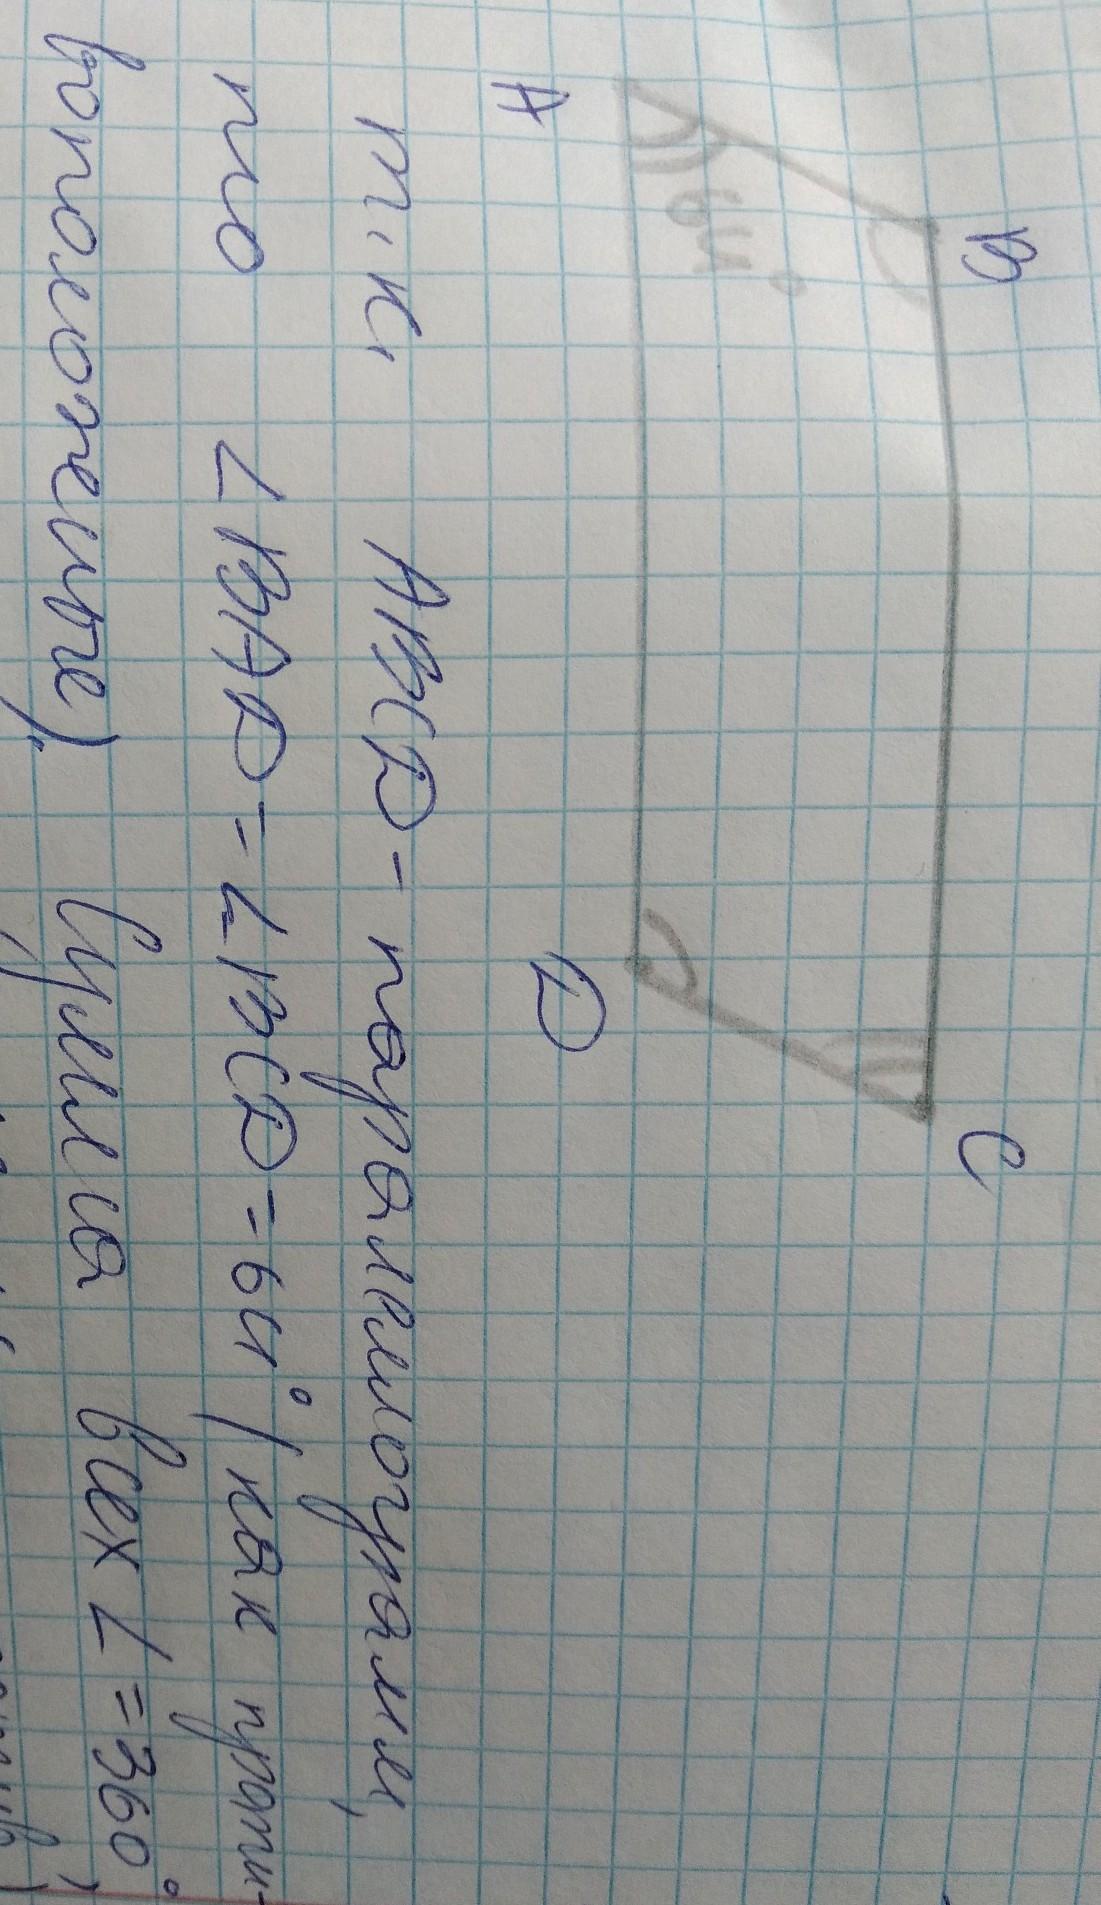 B C
61°
A D
т.к. ABCD - параллелограмм,
то ∠BAD = ∠BCD = 61° (как проти-
воположные). Сумма всех ∠ = 360°,